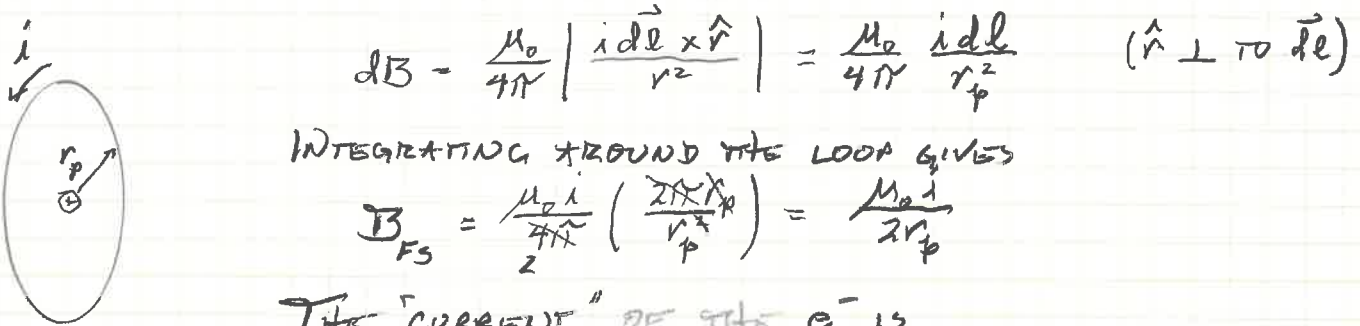 i
dB = μ₀/4π | i dl⃗ × r̂ / r² | = μ₀/4π i dl / r_p² (r̂ ⊥ TO dl⃗)
r_p
+
INTEGRATING AROUND THE LOOP GIVES
B_FS = μ₀ i / 4π 2 ( 2π r_p / r_p² ) = μ₀ i / 2r_p
THE "CURRENT" OF THE e⁻ IS